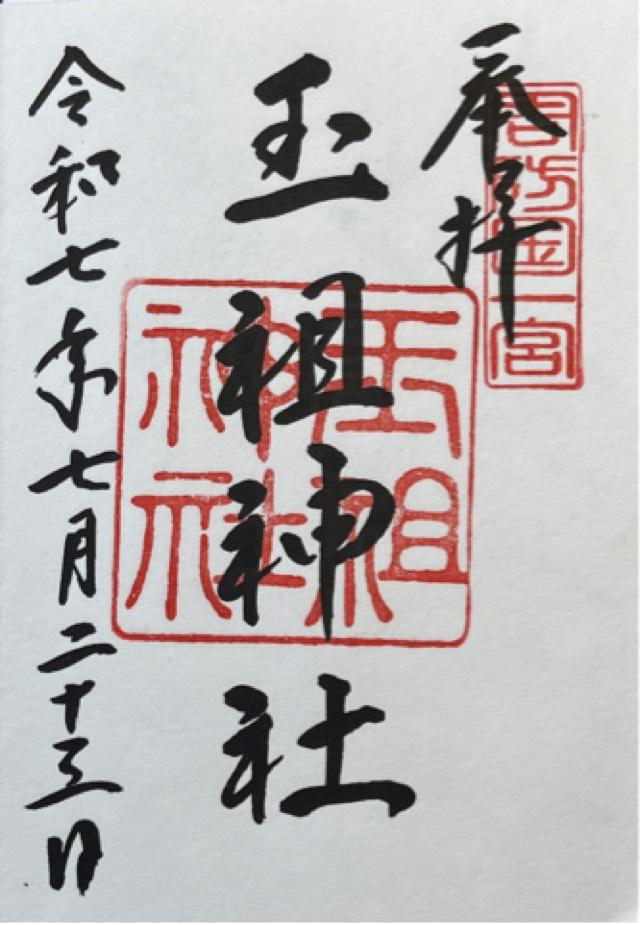 奉拝
周防国一宮
玉祖神社
玉祖神社
令和七年七月二十三日